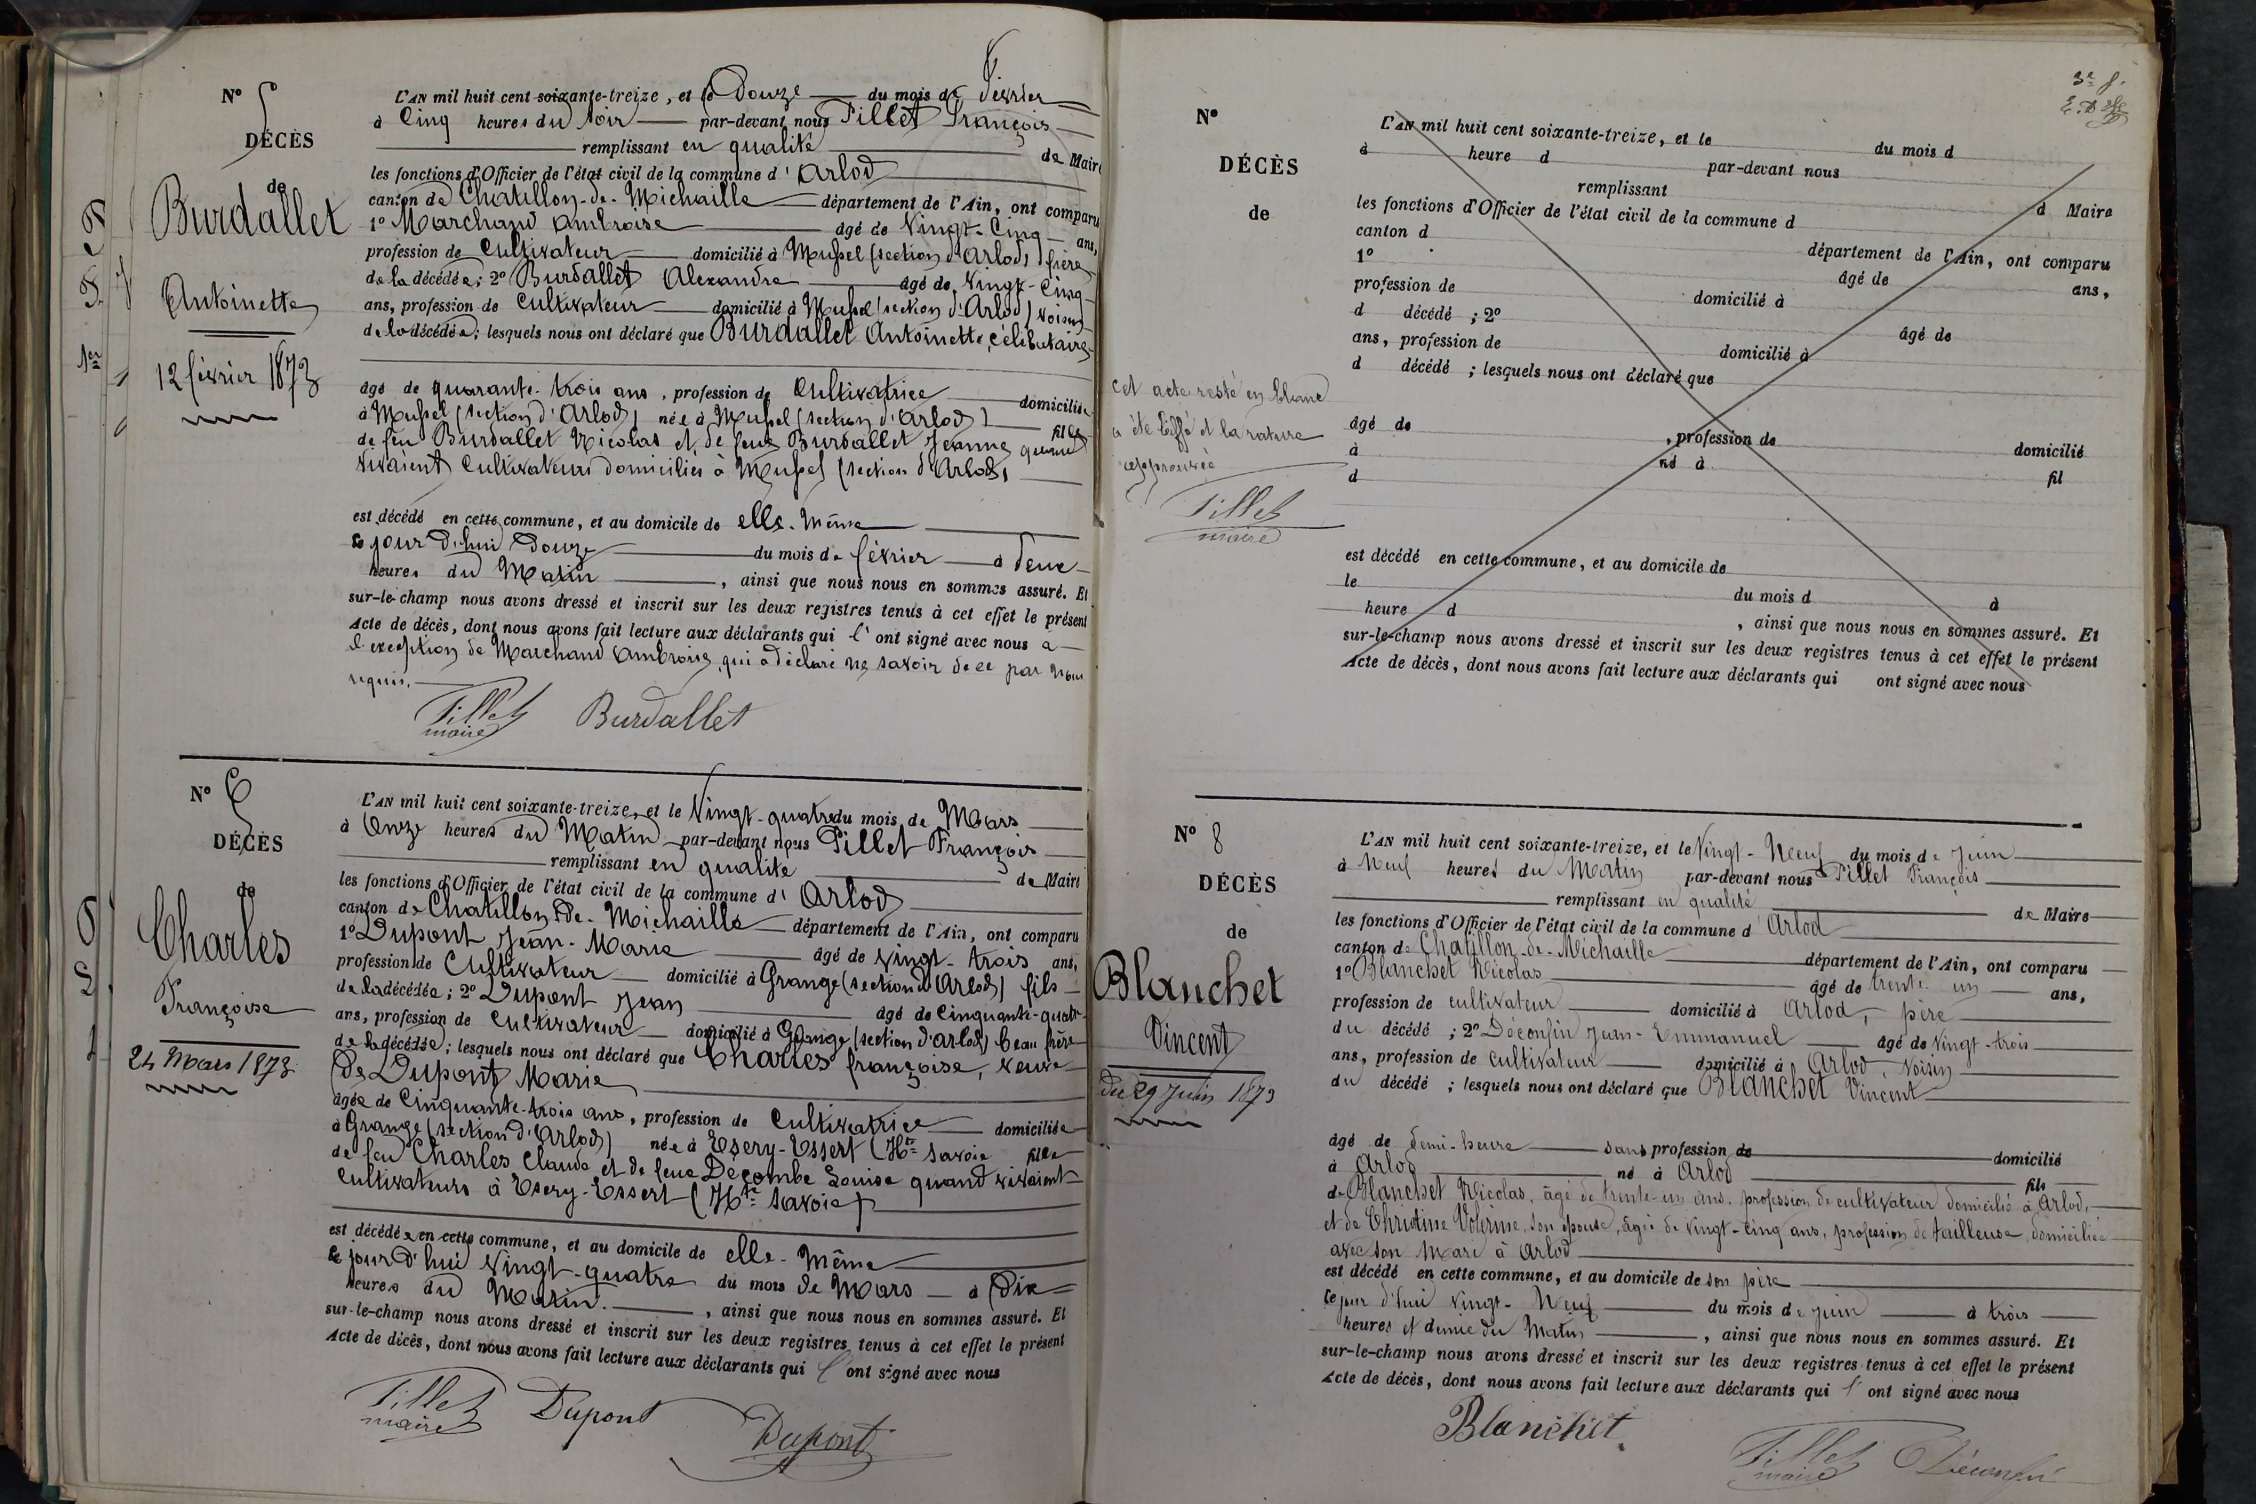 N° 5
DÉCÈS
de
Burdallet
Antoinette
12 février 1873
L'AN mil huit cent soixante-treize, et le Douze du mois de Février
à Cinq heures du soir par-devant nous Pillet François
remplissant en qualité de Maire
les fonctions d'Officier de l'état civil de la commune d'Arlod
canton de Chatillon-de-Michaille département de l'Ain, ont comparu
1° Marchand Ambroise âgé de Vingt-Cinq ans,
profession de Cultivateur domicilié à Mussel (section d'Arlod) frère
de la décédée; 2° Burdallet Alexandre âgé de Vingt-Cinq
ans, profession de Cultivateur domicilié à Mussel (section d'Arlod) voisin
de la décédée; lesquels nous ont déclaré que Burdallet Antoinette, célibataire
âgé de quarante-trois ans, profession de Cultivatrice domiciliée
à Mussel (section d'Arlod) née à Mussel (section d'Arlod) fille
de feu Burdallet Nicolas et de feue Burdallet Jeanne quand
vivaient Cultivateurs domiciliés à Mussel (section d'Arlod)
est décédé en cette commune, et au domicile de elle-même
ce jour d'hui Douze du mois de février à deux
heures du Matin, ainsi que nous nous en sommes assuré. Et
sur-le-champ nous avons dressé et inscrit sur les deux registres tenus à cet effet le présent
Acte de décès, dont nous avons fait lecture aux déclarants qui l'ont signé avec nous à
l'exception de Marchand Ambroise, qui a déclaré ne savoir de ce par nous
requis.
Pillet
maire
Burdallet
N° 6
DÉCÈS
de
Charles
Françoise
24 Mars 1873
L'AN mil huit cent soixante-treize, et le Vingt-quatre du mois de Mars
à Onze heures du Matin par-devant nous Pillet François
remplissant en qualité de Maire
les fonctions d'Officier de l'état civil de la commune d'Arlod
canton de Chatillon-de-Michaille département de l'Ain, ont comparu
1° Dupont Jean-Marie âgé de vingt-trois ans,
profession de Cultivateur domicilié à Grange (section d'Arlod) fils
de la décédée; 2° Dupont Jean âgé de Cinquante-quatre
ans, profession de Cultivateur domicilié à Grange (section d'Arlod) beau frère
de la décédée; lesquels nous ont déclaré que Charles françoise, veuve
de Dupont Marie
âgée de Cinquante-trois ans, profession de Cultivatrice domiciliée
à Grange (section d'Arlod) née à Esery-Essert (Hte Savoie fille
de feu Charles Claude et de feue Decombe Louise quand vivaient
Cultivateurs à Esery-Essert (Hte Savoie)
est décédée en cette commune, et au domicile de elle-même
ce jour d'hui Vingt-quatre du mois de Mars à Dix
heures du Matin, ainsi que nous nous en sommes assuré. Et
sur-le-champ nous avons dressé et inscrit sur les deux registres tenus à cet effet le présent
Acte de décès, dont nous avons fait lecture aux déclarants qui l'ont signé avec nous
Pillet
maire
Dupont
Dupont
3e f.
N°
DÉCÈS
de
L'AN mil huit cent soixante-treize, et le du mois d
à heure d par-devant nous
remplissant d Maire
les fonctions d'Officier de l'état civil de la commune d
canton d département de l'Ain, ont comparu
1° âgé de ans,
profession de domicilié à
d décédé ; 2° âgé de
ans, profession de domicilié à
d décédé ; lesquels nous ont déclaré que
âgé de , profession de domicilié
à né à fil
d
est décédé en cette commune, et au domicile de
le du mois d à
heure d , ainsi que nous nous en sommes assuré. Et
sur-le-champ nous avons dressé et inscrit sur les deux registres tenus à cet effet le présent
Acte de décès, dont nous avons fait lecture aux déclarants qui ont signé avec nous
Cet acte resté en blanc
a été biffé et la rature
approuvée
Pillet
maire
N° 8
DÉCÈS
de
Blanchet
Vincent
du 29 Juin 1873
L'AN mil huit cent soixante-treize, et le Vingt-Neuf du mois de Juin
à Neuf heures du Matin par-devant nous Pillet François
remplissant en qualité de Maire
les fonctions d'Officier de l'état civil de la commune d'Arlod
canton de Chatillon-de-Michaille département de l'Ain, ont comparu
1° Blanchet Nicolas âgé de trente-un ans,
profession de cultivateur domicilié à Arlod, père
du décédé ; 2° Déconfin Jean-Emmanuel âgé de Vingt-trois
ans, profession de cultivateur domicilié à Arlod, Voisin
du décédé ; lesquels nous ont déclaré que Blanchet Vincent
âgé de demi-heure sans profession de domicilié
à Arlod né à Arlod fils
de Blanchet Nicolas, âgé de trente-un ans, profession de cultivateur domicilié à Arlod,
et de Christine Volerine, son épouse, âgée de vingt-cinq ans, profession de tailleuse, domiciliée
avec son Mari à Arlod
est décédé en cette commune, et au domicile de son père
ce jour d'hui vingt-Neuf du mois de Juin à trois
heures et demie du Matin, ainsi que nous nous en sommes assuré. Et
sur-le-champ nous avons dressé et inscrit sur les deux registres tenus à cet effet le présent
Acte de décès, dont nous avons fait lecture aux déclarants qui l'ont signé avec nous
Blanchet
Pillet
maire
Déconfin